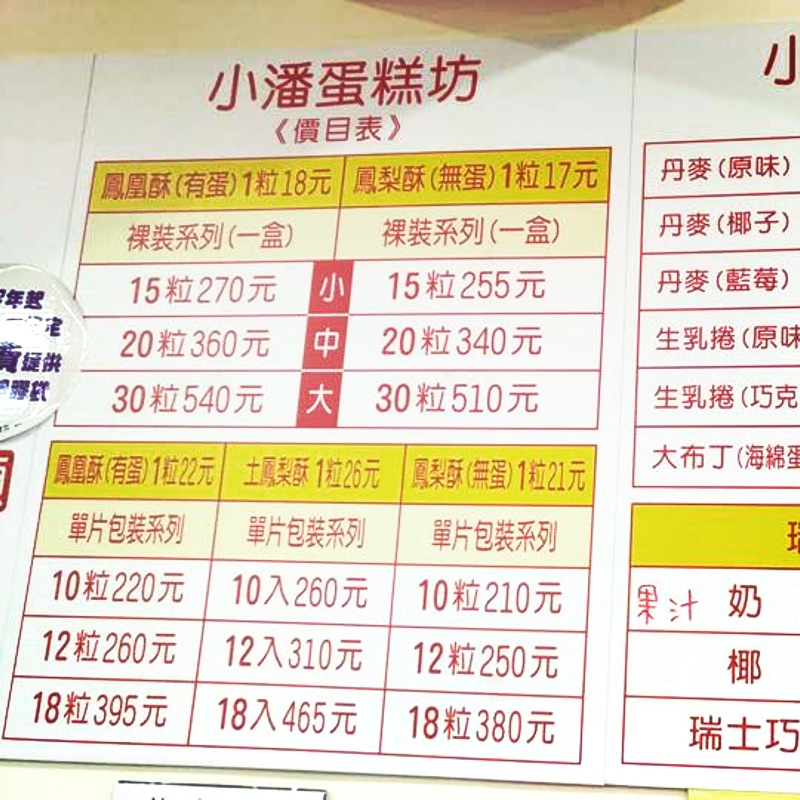 小潘蛋糕坊
《價目表》
鳳凰酥(有蛋)1粒18元 鳳梨酥(無蛋)1粒17元
裸裝系列(一盒) 裸裝系列(一盒)
15粒270元 小 15粒255元
20粒360元 中 20粒340元
30粒540元 大 30粒510元
鳳凰酥(有蛋)1粒22元 土鳳梨酥1粒26元 鳳梨酥(無蛋)1粒21元
單片包裝系列 單片包裝系列 單片包裝系列
10粒220元 10入260元 10粒210元
12粒260元 12入310元 12粒250元
18粒395元 18入465元 18粒380元
小
丹麥(原味)
丹麥(椰子)
丹麥(藍莓)
生乳捲(原味
生乳捲(巧克
大布丁(海綿蛋
瑞
果汁 奶
椰
瑞士巧
年起
定
提供
膠袋